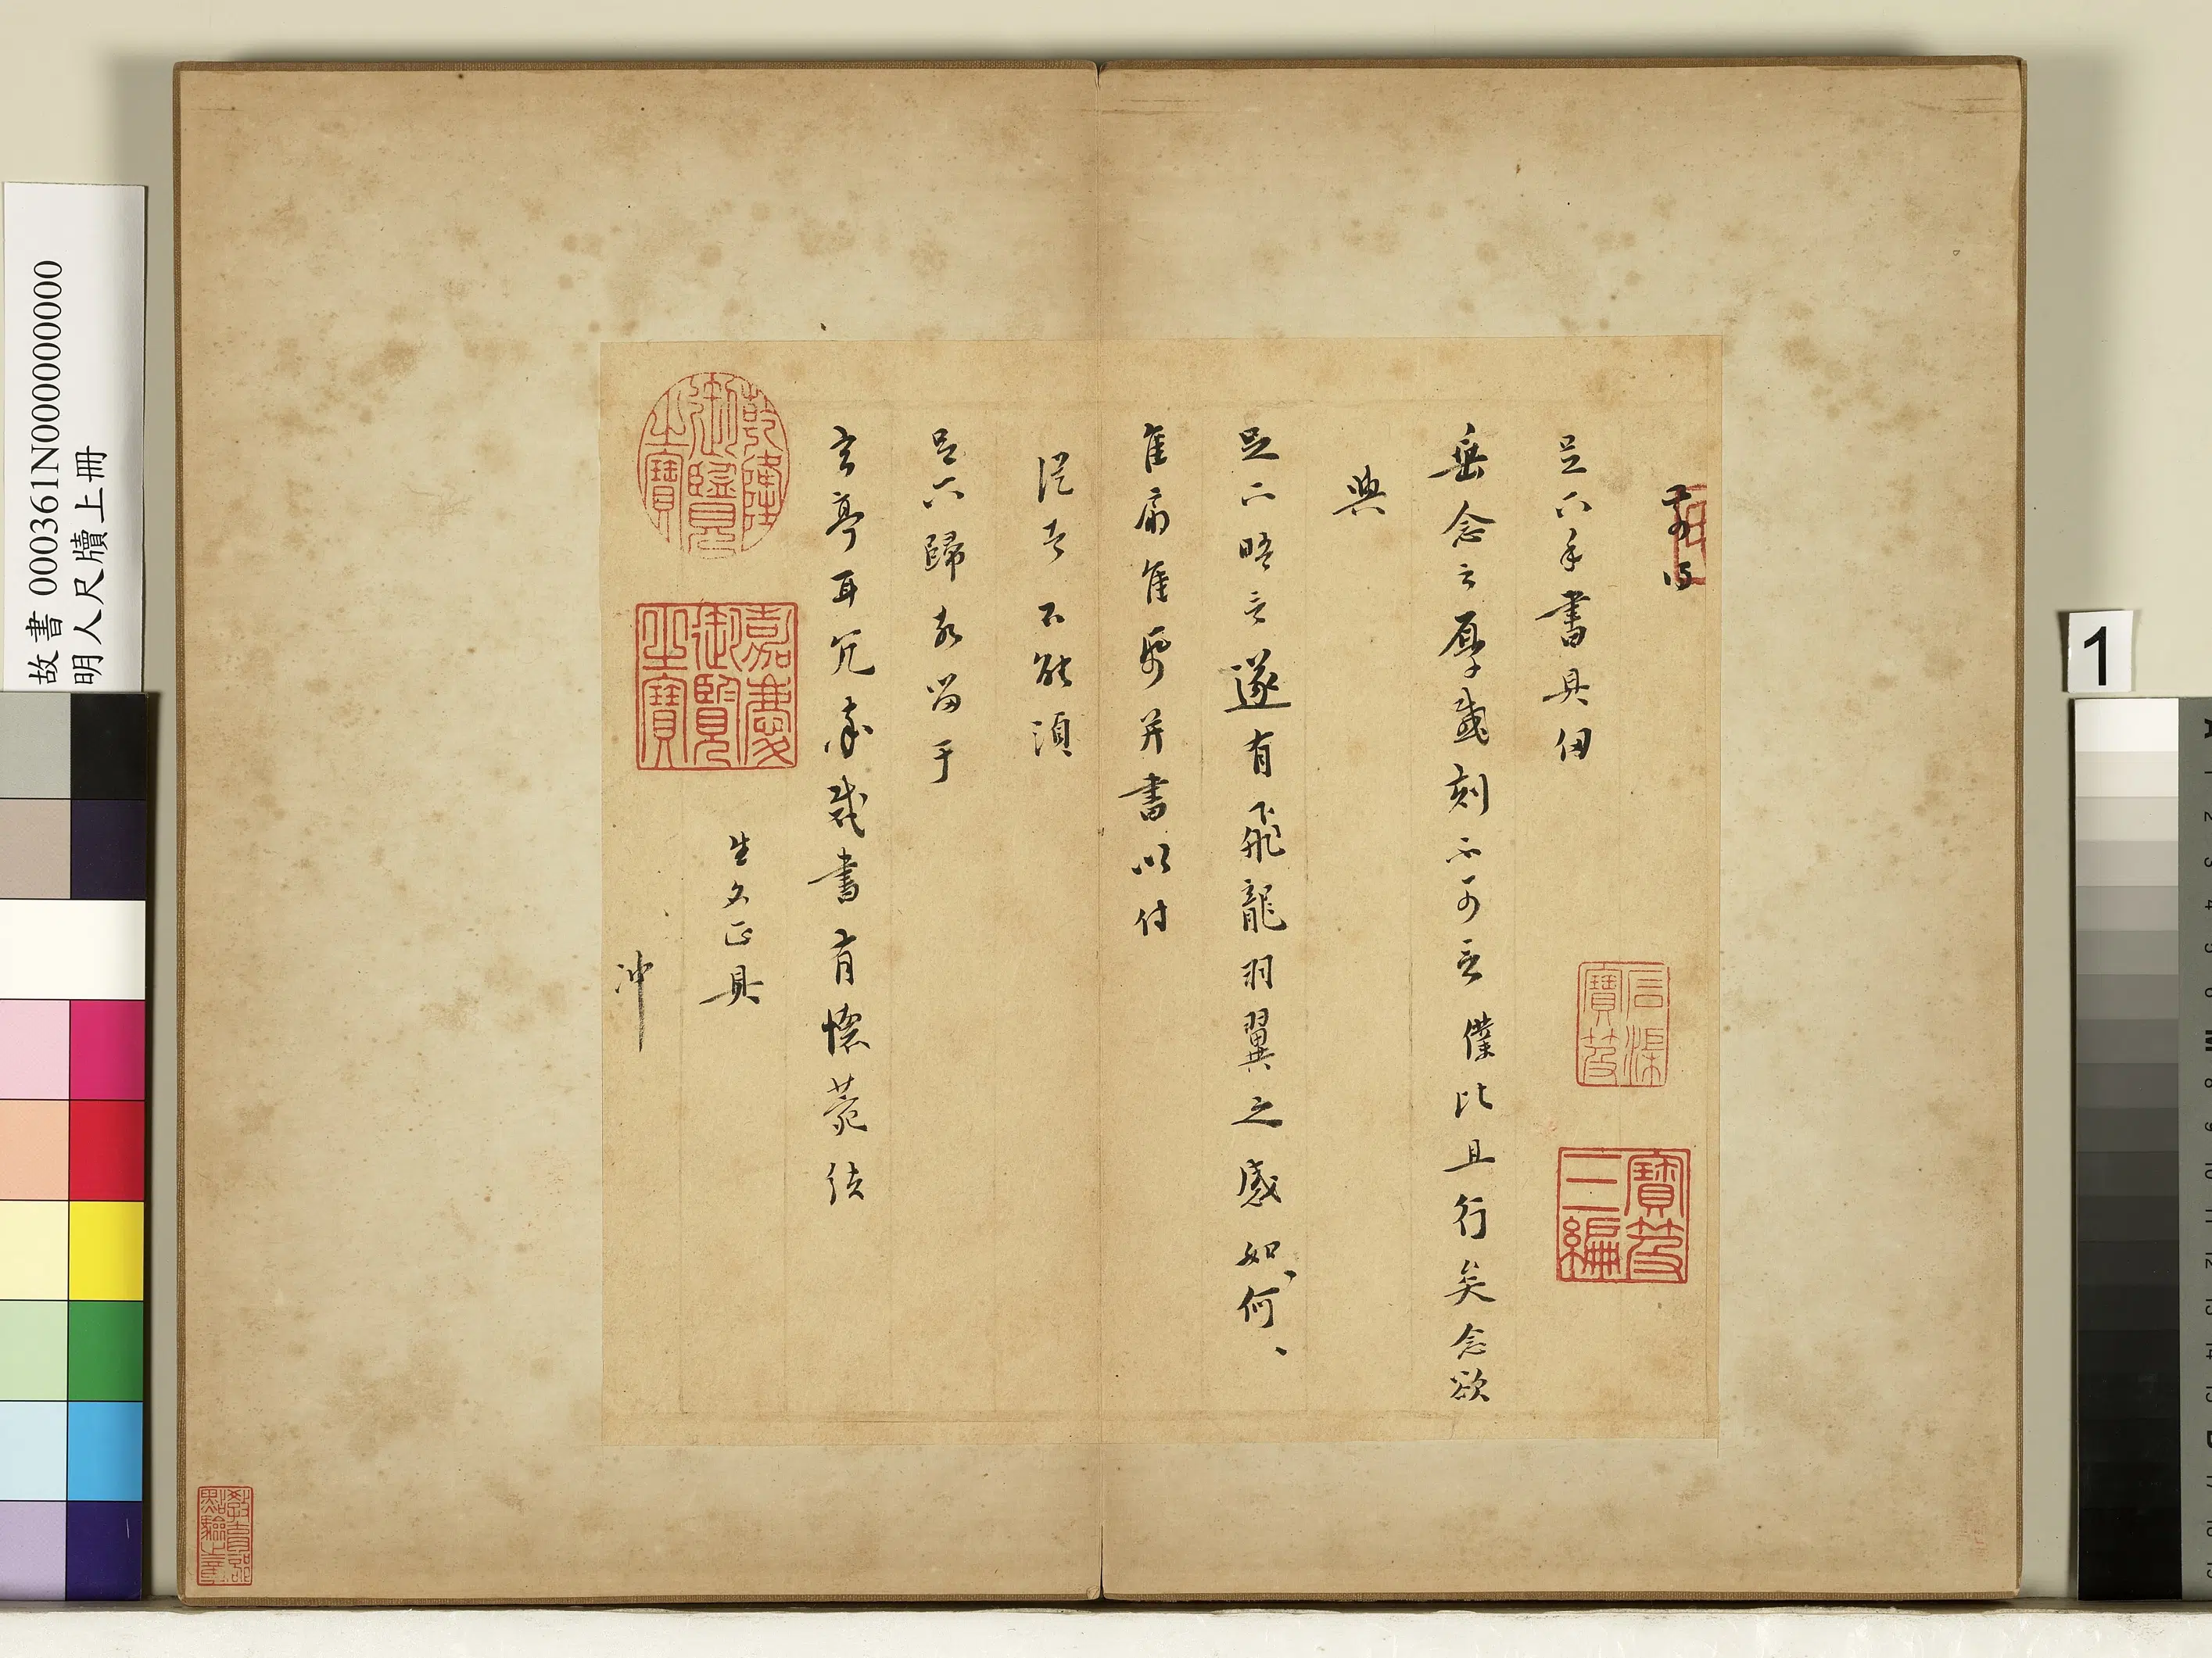 足下手書具, 
垂念之厚感刻不可言 僕比且行矣念欲
與
足下晤言遂有飛龍羽翼之感如何、、
隹扇隹 并書以付
從者不能須
足下歸敬留于
玄亭耳冗 裁書有懷菀結
生文正具
沖
乾隆御覽之寶
嘉慶御覽之寶
石渠寶笈
寶笈三編
故書 000361N000000000
明人尺牘上冊
1